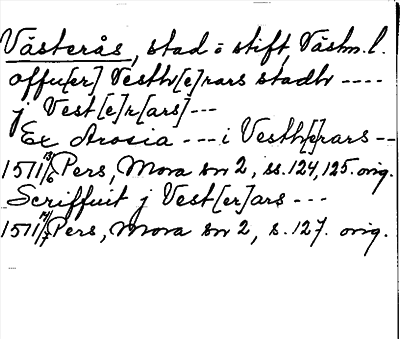 Västerås, stad o stift, Västm. l.
offu[er] Vesthr[e]rars stadhr ----
j Vest[e]r[ars]---
Ex Arosia --- i Vesth[e]rars --
1511 13/6 Pers, Mora nr 2, ss. 124, 125. orig.
Scriffuit j Vest[er]ars ---
1511 /7 Pers, Mora nr 2, s. 127. orig.